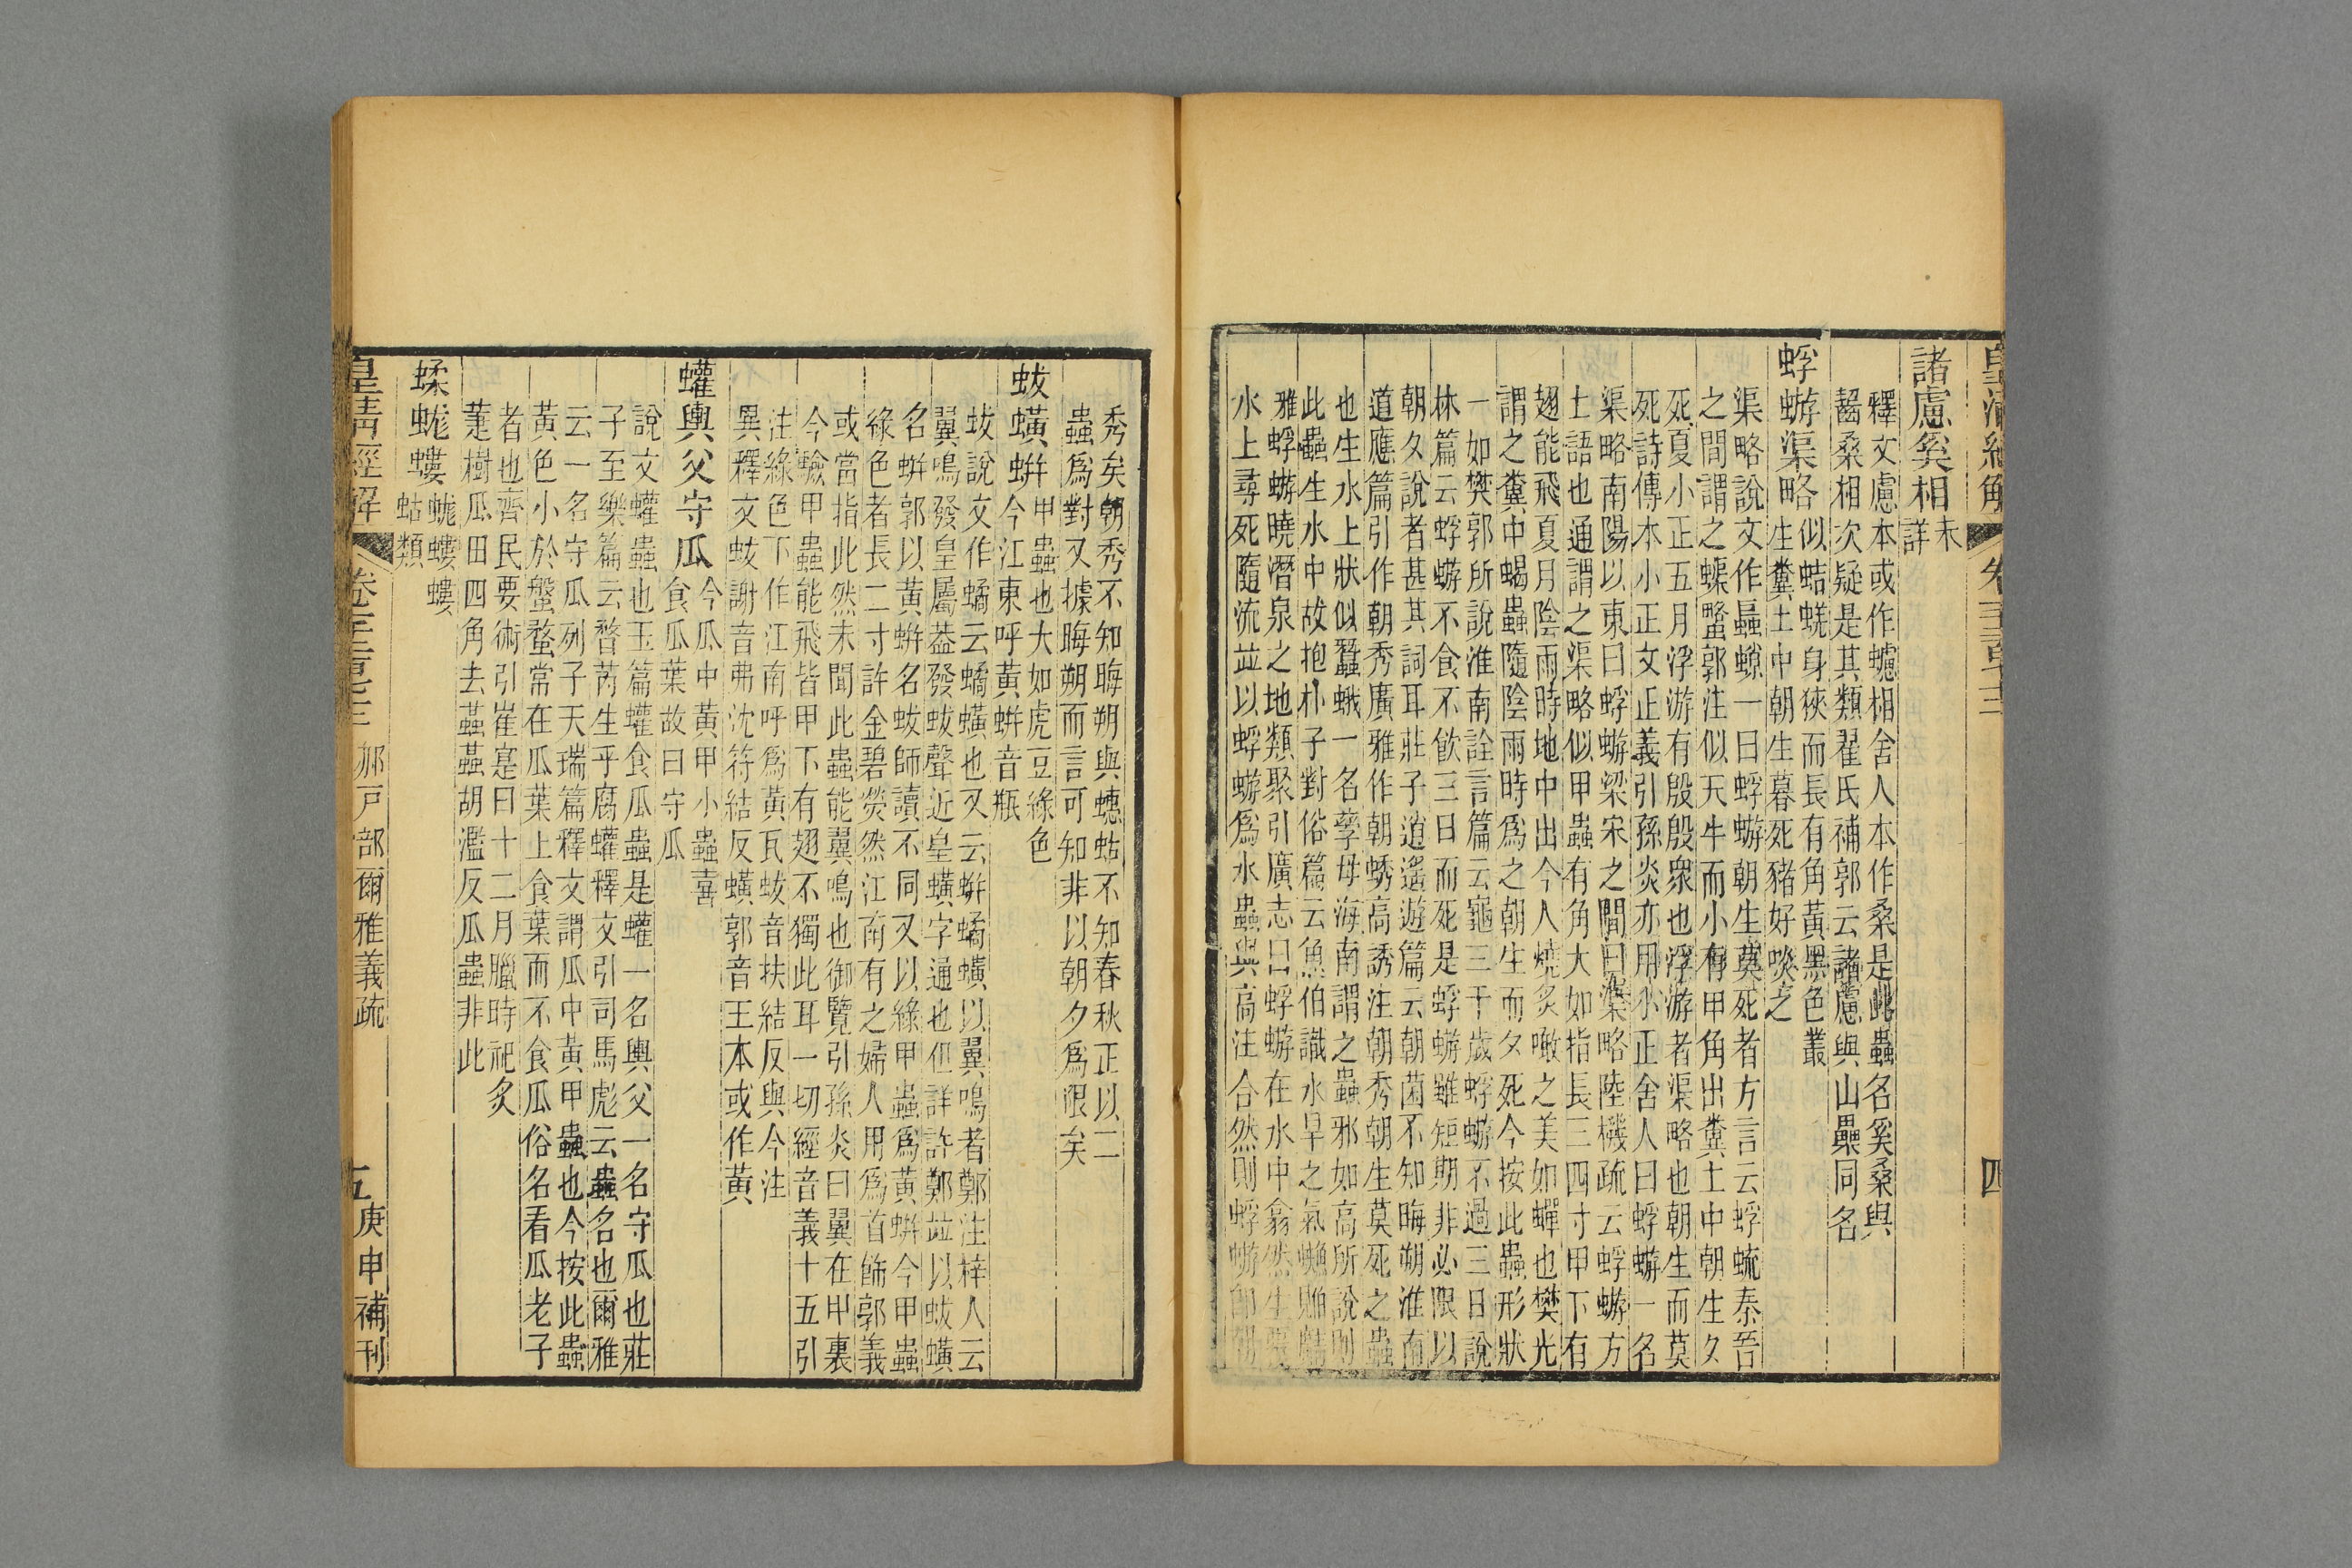 四
諸慮奚相未
詳
釋文慮本或作蝫相舍人本作桑是此蟲名奚桑與
齧桑相次疑是其類翟氏補郭云諸慮與山櫐同名
蜉蝣渠略似蛣蜣身狹而長有角黃黑色叢
生糞土中朝生暮死豬好啖之
渠略說文作螶䗐一曰蜉蝣朝生莫死者方言云蜉蝣秦晉
之間謂之蟝䗐郭注似天牛而小有甲角出糞土中朝生夕
死夏小正五月浮游有殷殷衆也浮游者渠略也朝生而莫
死詩傳本小正文正義引孫炎亦用小正舍人曰蜉蝣一名
渠略南陽以東曰蜉蝣梁宋之間曰渠略陸機疏云蜉蝣方
土語也通謂之渠略似甲蟲有角大如指長三四寸甲下有
翅能飛夏月陰雨時地中出今人燒炙噉之美如蟬也樊光
謂之糞中蝎蟲隨陰雨時爲之朝生而夕死今按此蟲形狀
一如樊郭所說淮南詮言篇云龜三千歲蜉蝣不過三日說
林篇云蜉蝣不食不飮三日而死是蜉蝣雖短期非必限以
朝夕說者甚其詞耳莊子逍遙遊篇云朝菌不知晦朔淮南
道應篇引作朝秀廣雅作朝蜏高誘注朝秀朝生莫死之蟲
也生水上狀似蠶蛾一名孳母海南謂之蟲邪如高所說則
此蟲生水中故抱朴子對俗篇云魚伯識水旱之氣蜉蝣
雅蜉蝣曉潛泉之地類聚引廣志曰蜉蝣在水中翕然生
水上尋死隨流竝以蜉蝣爲水蟲與高注合然則蜉蝣卽朝
秀矣朝秀不知晦朔與蟪蛄不知春秋正以二
蟲爲對又據晦朔而言可知非以朝夕爲限矣
蛂蟥蛢甲蟲也大如虎豆綠色
今江東呼黃蛢音瓶
蛂說文作蟠云蟠蟥也又云蛢蟠蟥以翼鳴者鄭注梓人云
翼鳴發皇屬葢發蛂聲近皇蟥字通也但詳許鄭竝以蛂蟥
名蛢郭以黃蛢名蛂師讀不同又以綠甲蟲爲黃蛢今甲蟲
綠色者長二寸許金碧熒然江南有之婦人用爲首飾郭義
或當指此然未聞此蟲能翼鳴也御覽引孫炎曰翼在甲裏
今驗甲蟲能飛皆甲下有翅不獨此耳一切經音義十五引
注綠色下作江南呼爲黃瓦蛂音扶結反與今注
異釋文蛂謝音弗沈符結反蟥郭音王本或作黃
蠸輿父守瓜今瓜中黃甲小蟲喜
食瓜葉故曰守瓜
說文蠸蟲也玉篇蠸食瓜蟲是蠸一名輿父一名守瓜也莊
子至樂篇云瞀芮生乎腐蠸釋文引司馬彪云蟲名也爾雅
云一名守瓜列子天瑞篇釋文謂瓜中黃甲蟲也今按此蟲
黃色小於螌蝥常在瓜葉上食葉而不食瓜俗名看瓜老子
者也齊民要術引崔寔曰十二月臘時祀炙
萐樹瓜田四角去蟲蟲胡濫反瓜蟲非此
蝚蛖螻蛖螻螻
蛄類
皇淸經解 郝戶部爾雅義疏 五 庚申補刊